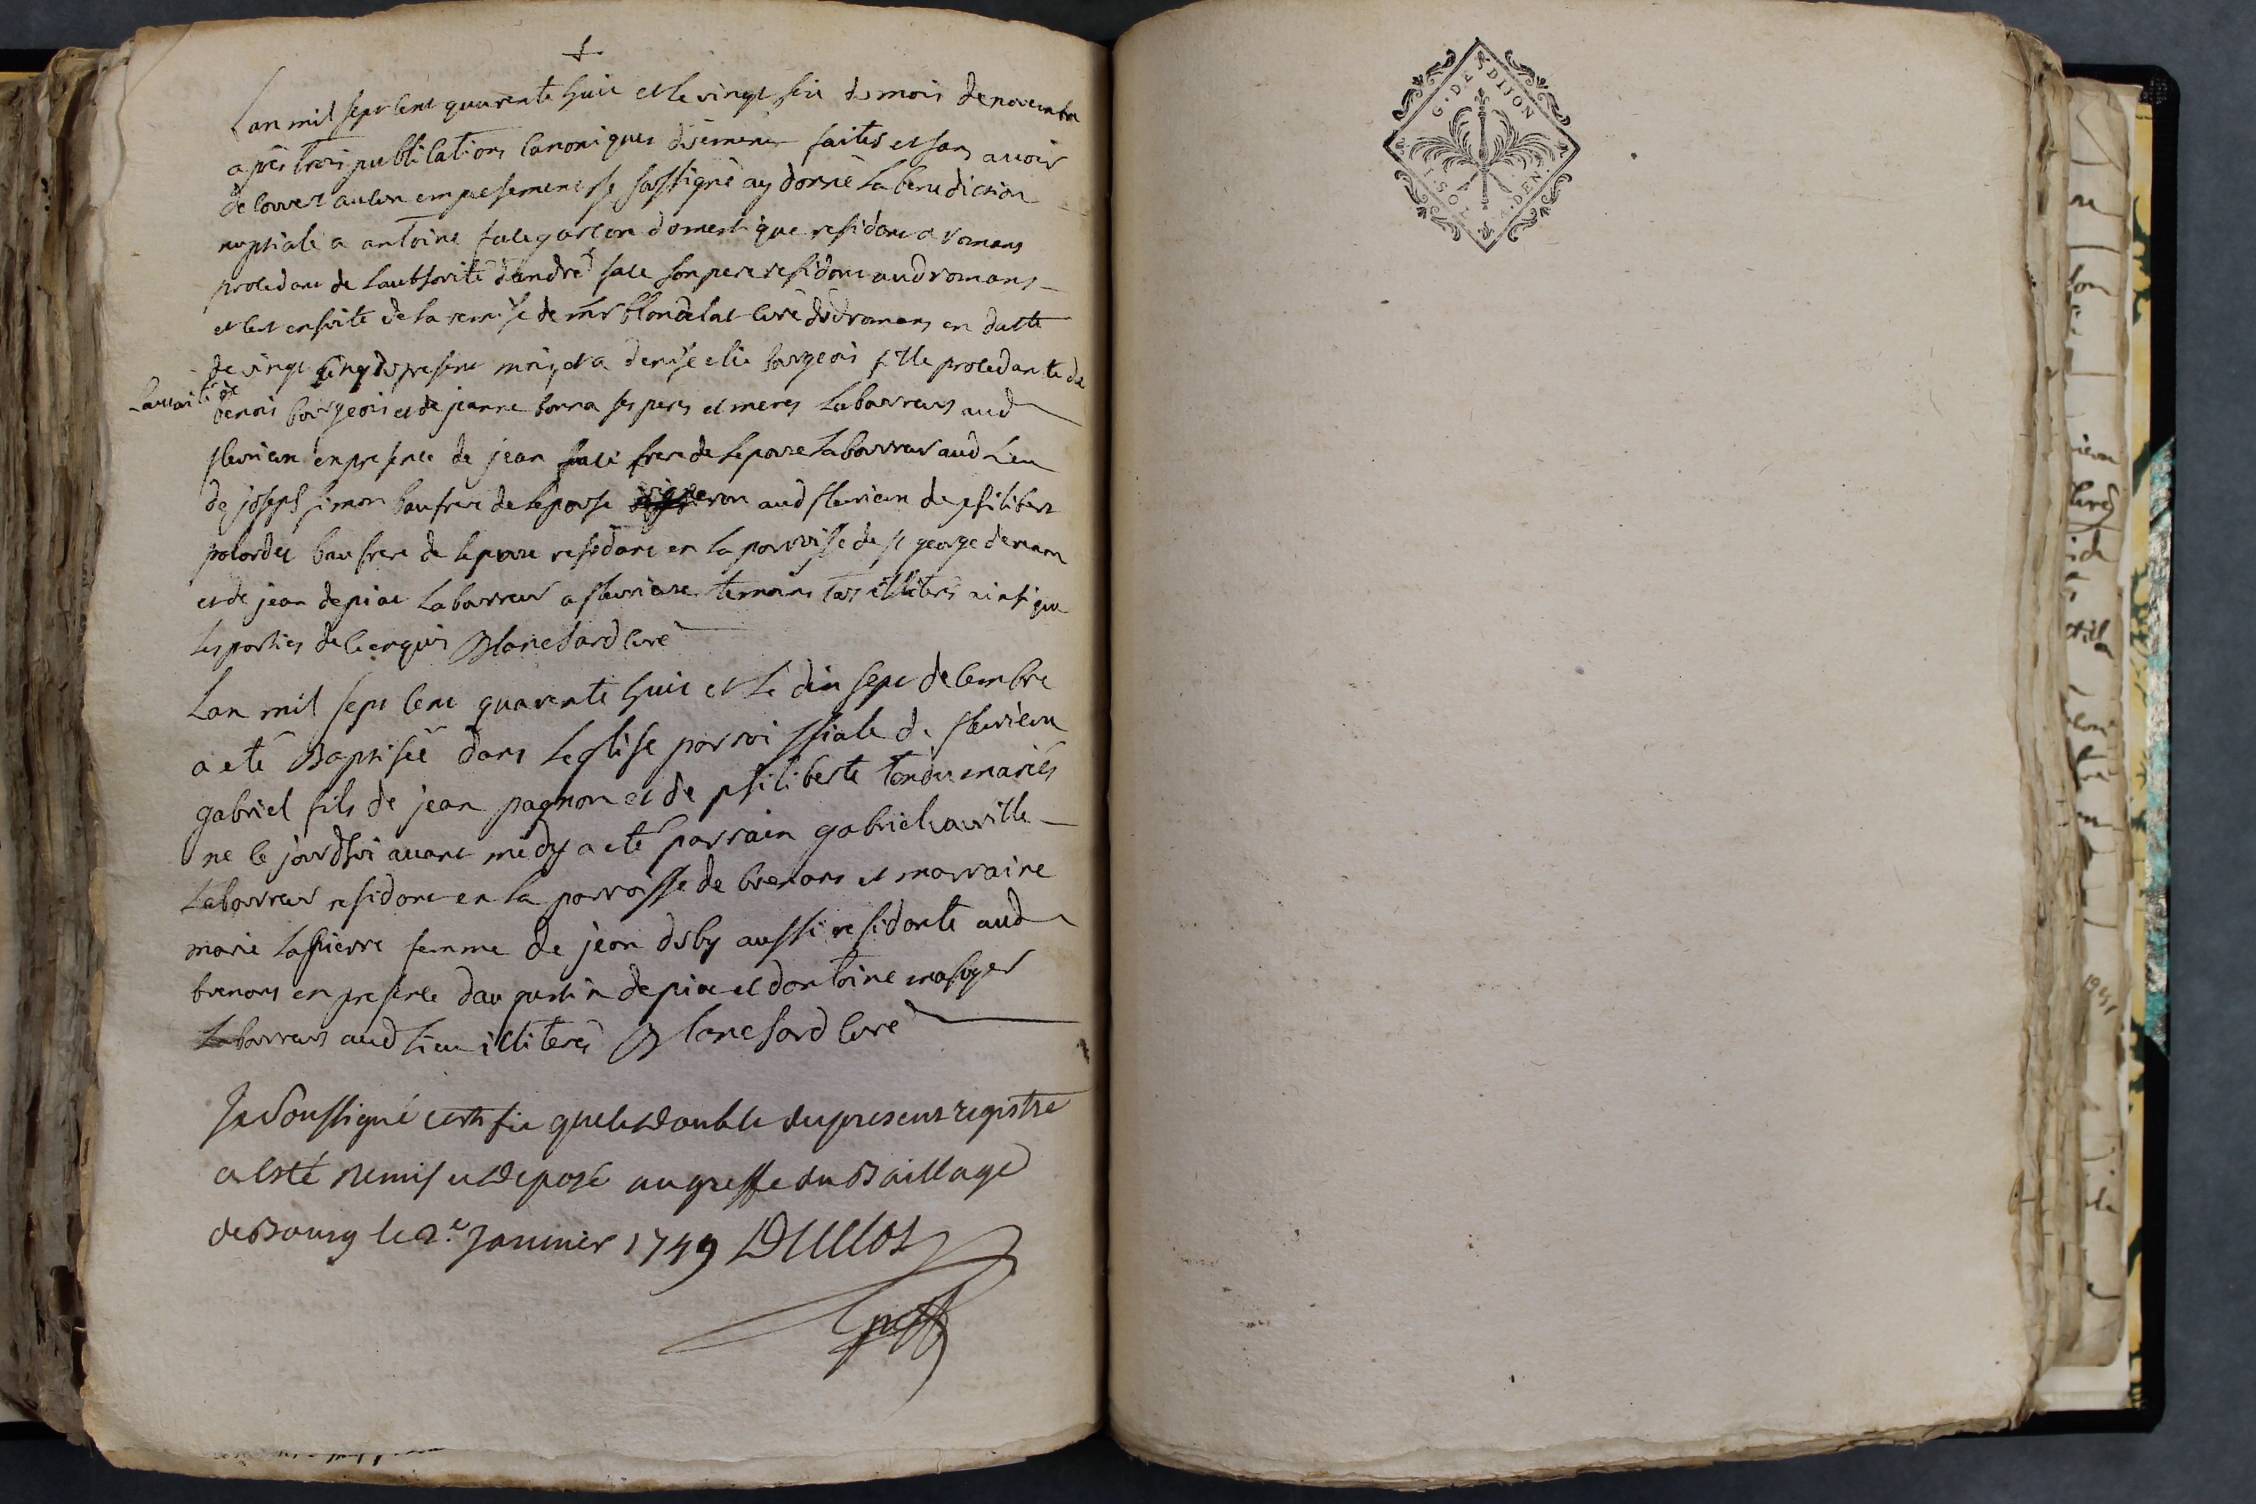 Lan mil sept cent quarente huit et le vingt six du mois de novembre
apres trois publications canoniques düement faites et sans avoir
decouvert aucun empechement Je soussigné ay donné la benediction
nuptiale a antoine sale garcon domestique residant a romans
procedant de lauthorité d'andré sale son pere residant aud romans
et cest ensuite de la remise de mr blondelat curé dud romans en datte
de vingt cinq du present mois et a denise elie borgeois fille procedante de
lautorité de
denois borgeois et de jeanne bonna ses peres et meres laboureurs aud
fleurieux en presence de jean sale frere de lepoux laboureur aud lieu
de joseph simon beaufrere de lepouse vigneron aud fleurieux de philibert
polordet beaufrere de lepoux residant en la parroisse de st george de renam
et de jean depiat laboureur a fleurieux temoins tous illiterés ainsi que
les parties de ce enquis Blanchard curé
Lan mil sept cent quarente huit et le dix sept decembre
a eté Baptisée dans leglise parroissiale de fleurieux
gabriel fils de jean pagnon et de philiberte tondu mariés
né le jourdhui avant midy a eté parrain gabriel
laboureur residant en la parroisse de brenans et marraine
marie lapierre femme de jean duby aussi residante aud
brenans en presence daugustin depiat et dantoine masuyer
laboureurs aud lieu illiterés Blanchard curé
Je Soussigné certifie que le Double du present registre
a esté Remis et Deposé au greffe du Baillage
de Bourg le 2e Janvier 1749 Duclos
Greff
G. DE DIJON